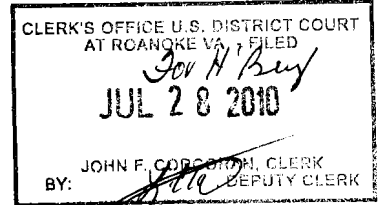 CLERK'S OFFICE U.S. DISTRICT COURT
AT ROANOKE VA, FILED
For H
JUL 28 2010
JOHN F. CORCORAN, CLERK
BY: DEPUTY CLERK